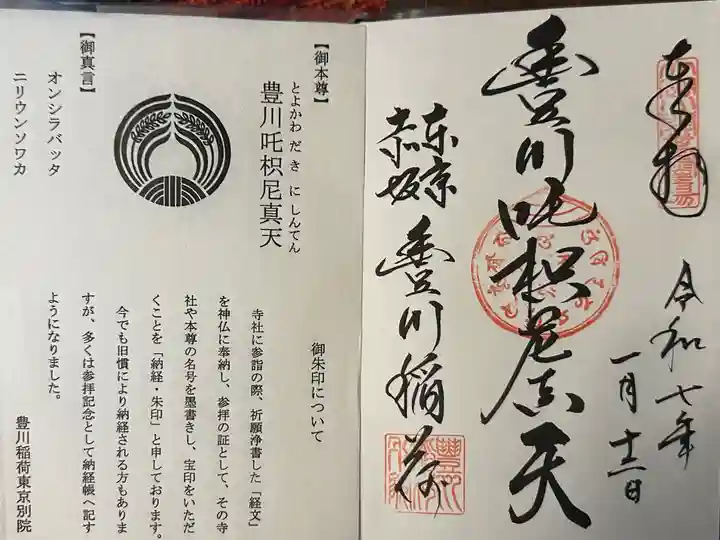 奉拝
令和七年
一月十二日
豊川吒枳尼真天
東京
赤坂
豊川稲荷
【御本尊】
とよかわ だ き に しんてん
豊川吒枳尼真天
【御真言】
オンシラバッタ
ニリウンソワカ
御朱印について
寺社に参詣の際、祈願浄書した「経文」
を神仏に奉納し、参拝の証として、その寺
社や本尊の名号を墨書きし、宝印をいただ
くことを「納経・朱印」と申しております。
今でも旧慣により納経される方もありま
すが、多くは参拝記念として納経帳へ記す
ようになりました。
豊川稲荷東京別院